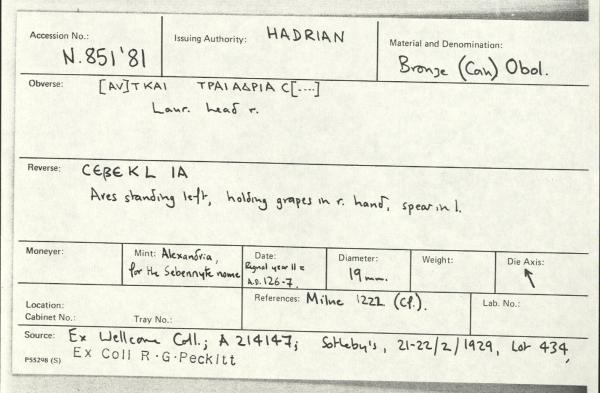 Accession No.: N.851'81
Issuing Authority: HADRIAN
Material and Denomination: Bronze (Can) Obol.
Obverse: [AV]TKAI ΤΡΑΙΑΔΡΙΑ C[....]
Laur. head r.
Reverse: CEBE K L IA
Ares standing left, holding grapes in r. hand, spear in l.
Moneyer:
Mint: Alexandria,
for the Sebennyte nome
Date:
Regnal year 11 =
A.D. 126-7.
Diameter:
19 mm.
Weight:
Die Axis:
↖
Location:
Cabinet No.:
Tray No.:
References: Milne 1222 (Cf.).
Lab. No.:
Source: Ex Wellcome Coll.; A 214147; Sotheby's, 21-22/2/1929, Lot 434,
P55298 (S) Ex Coll R.G.Peckitt